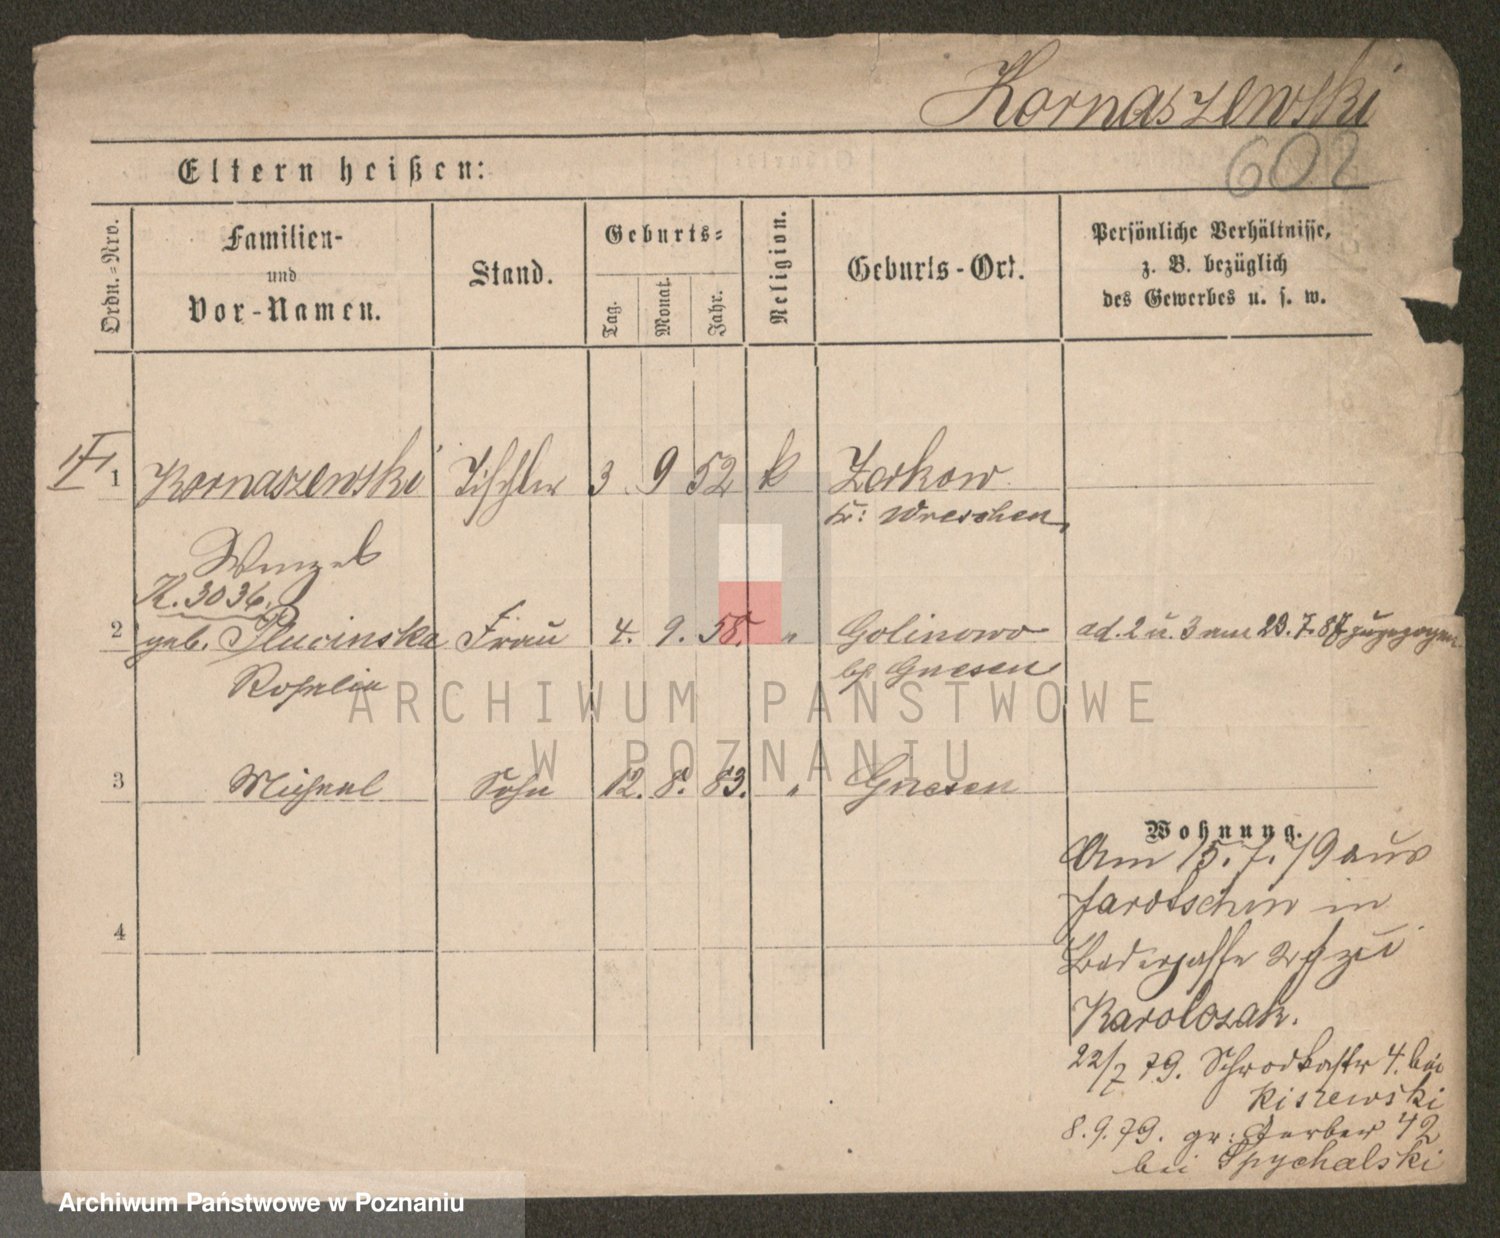 Kornaszewski
602
Eltern heißen:
Ordn.-Nro.
Familien-
und
Vor-Namen.
Stand.
Geburts-
Tag.
Monat.
Jahr.
Religion.
Geburts-Ort.
Persönliche Verhältnisse,
z. B. bezüglich
des Gewerbes u. s. w.
1 Kornaszewski Tischler 3 9 52 k Zerkow
Kr: Wreschen,
Wenzel
K. 3036.
2 geb. Plucinska Frau 4. 9. 58. " Golinowo ad. 2 u. 3 am 23. 7. 87 zugezogen
Rosalia bei Gnesen
3 Michael Sohn 12. 8. 83. " Gnesen
Wohnung.
4
Am 15. 7. 79 aus
Jarotschin in
zu
Karolczak.
22/7 79. Schrodkastr 4. bei
Kiszewski
8. 9. 79. gr: Gerber 42
bei Spychalski
ARCHIWUM PAŃSTWOWE
W POZNANIU
Archiwum Państwowe w Poznaniu